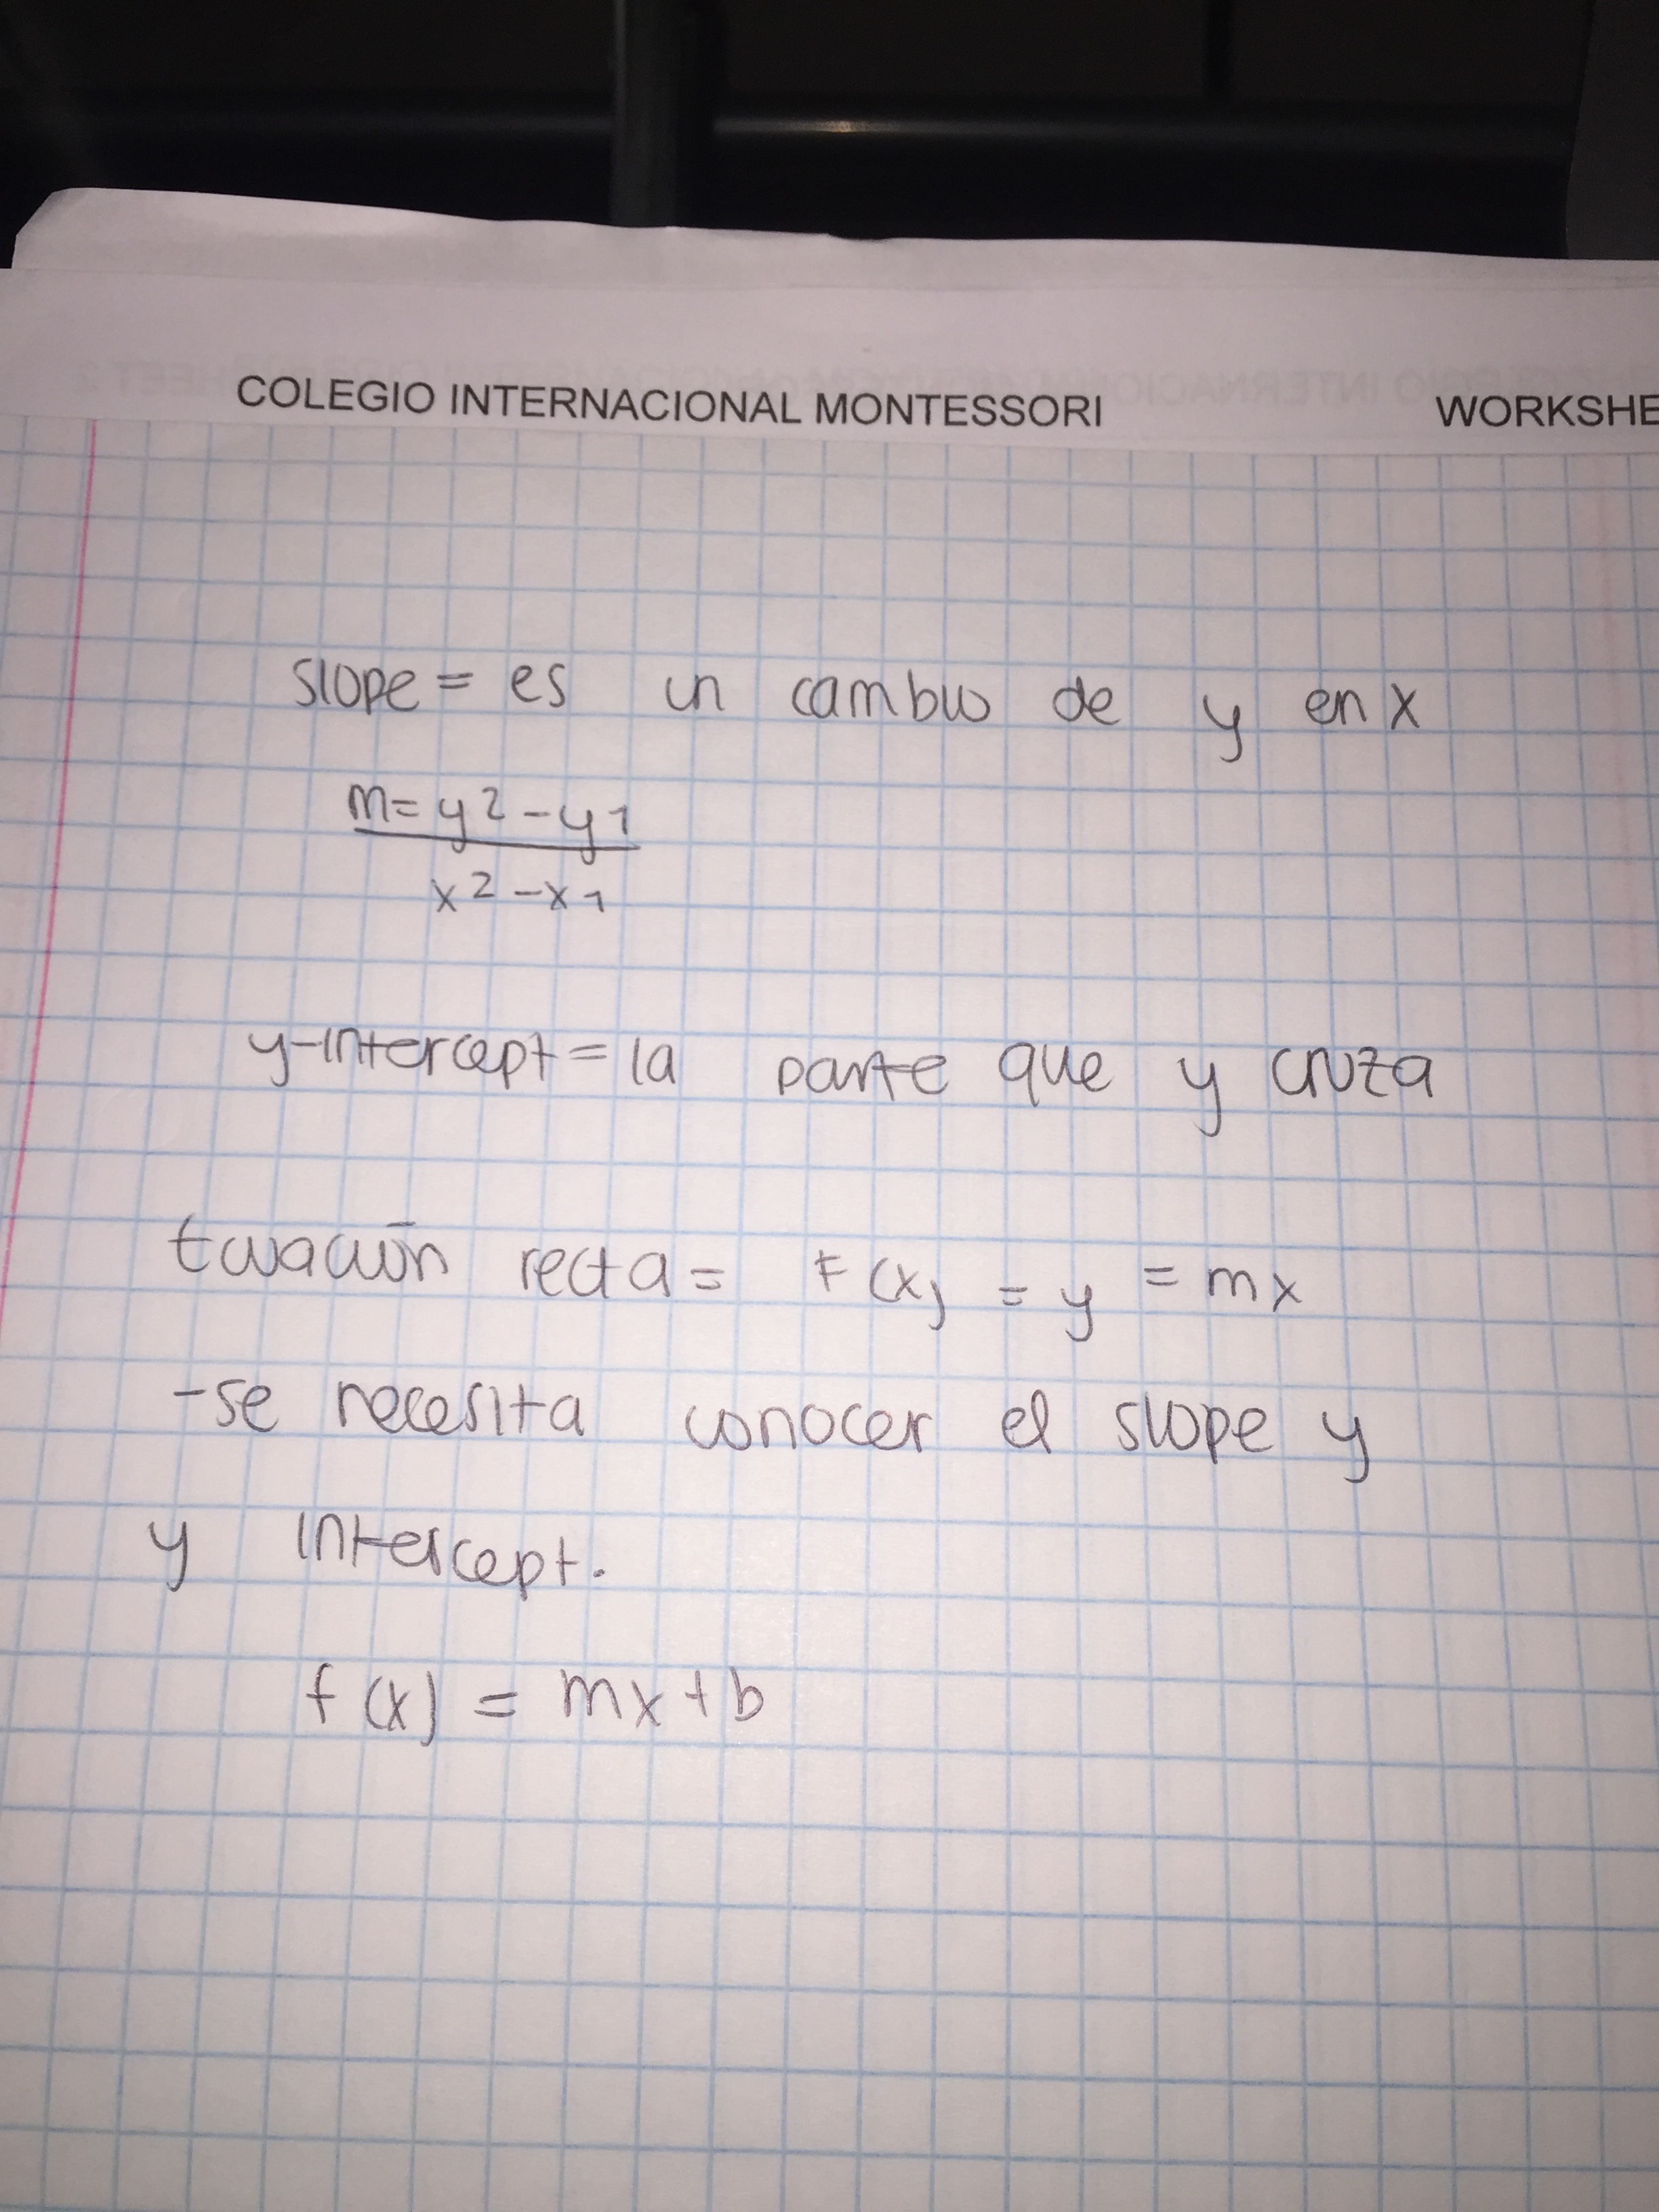 COLEGIO INTERNACIONAL MONTESSORI WORKSHE
slope = es un cambio de y en x
m = y2 - y1
x2 - x1
y-intercept = la parte que y cruza
Ecuación recta = F(x) = y = mx
- se necesita conocer el slope y
y intercept.
f(x) = mx + b